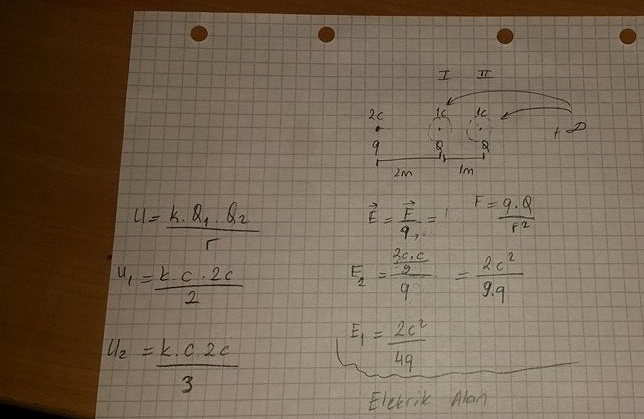 I II
2c 1c 1c
q Q Q + ∞
2m 1m
U = k.Q1.Q2 / r
E = F / q = F = q.Q / r²
U1 = k.c.2c / 2
E2 = 2c.c / 9 / q = 2c² / 9.q
E1 = 2c² / 4q
U2 = k.c.2c / 3
Elektrik Alan